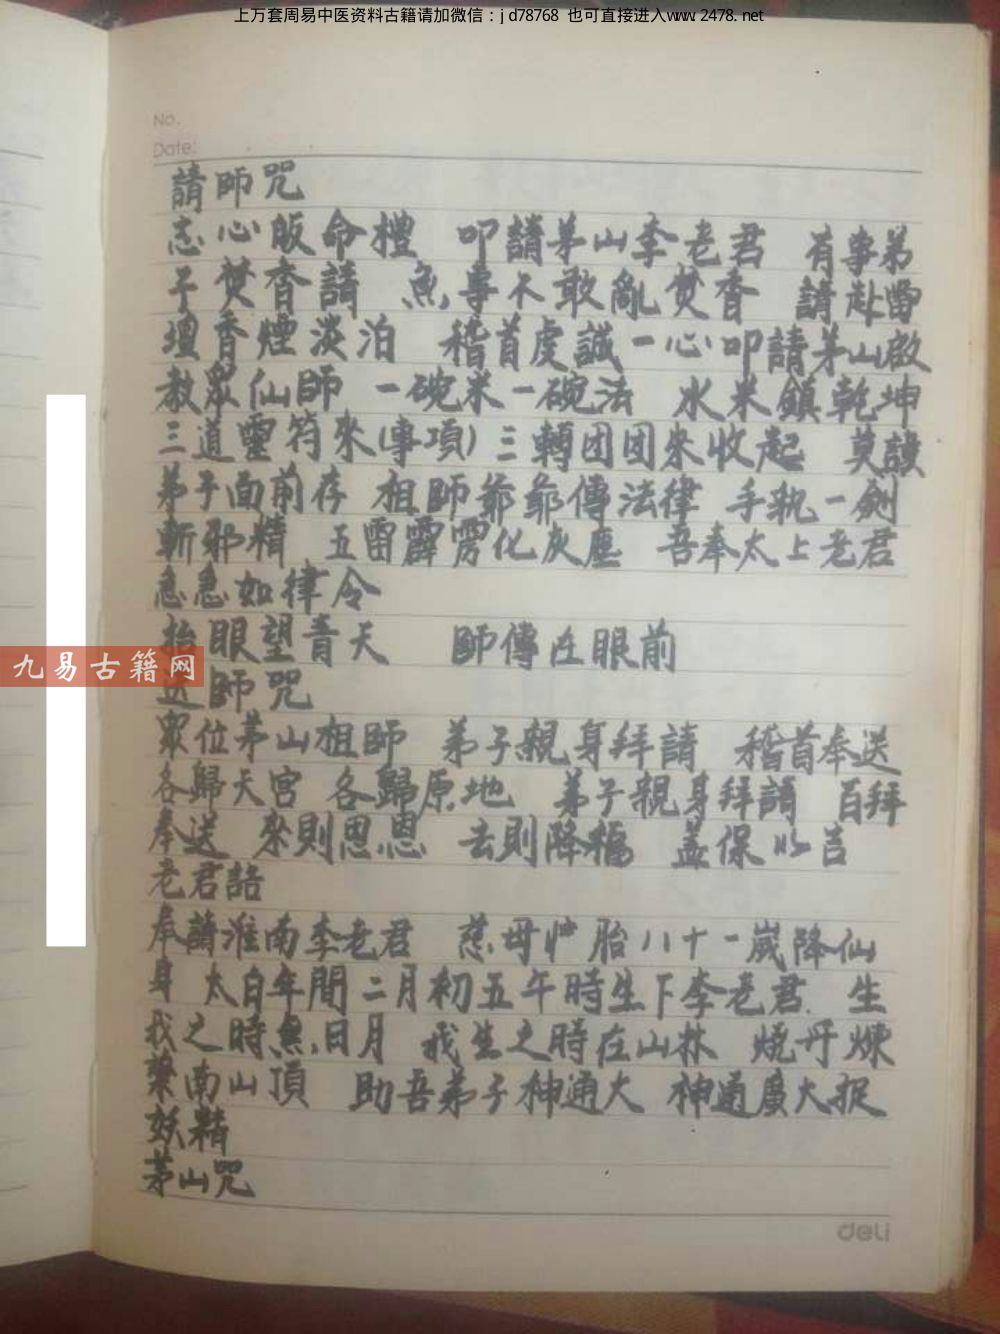 上万套周易中医资料古籍请加微信：jd78768 也可直接进入www.2478.net
No.
Date:
請師咒
志心皈命禮 叩請茅山李老君 有事弟
子焚香請 無事不敢亂焚香 請赴雷
壇香煙淡泊 稽首虔誠一心叩請茅山啟
教眾仙師 一碗米一碗法 水米鎮乾坤
三道靈符來(專項)三轉团团來收起 莫讓
弟子面前存 祖師爺爺傳法律 手執一劍
斬邪精 五雷霹雳化灰塵 吾奉太上老君
急急如律令
抬眼望青天 師傳在眼前
九易古籍网
送師咒
眾位茅山祖師 弟子親身拜請 稽首奉送
各歸天宫 各歸原地 弟子親身拜請 百拜
奉送 來則思恩 去則降福 蓋保以吉
老君誥
奉請淮南李老君 慈母怀胎八十一嵗降仙
身 太白年間二月初五午時生下李老君 生
我之時無日月 我生之時在山林 燒丹煉
藥南山頂 助吾弟子神通大 神通廣大捉
妖精
茅山咒
deli